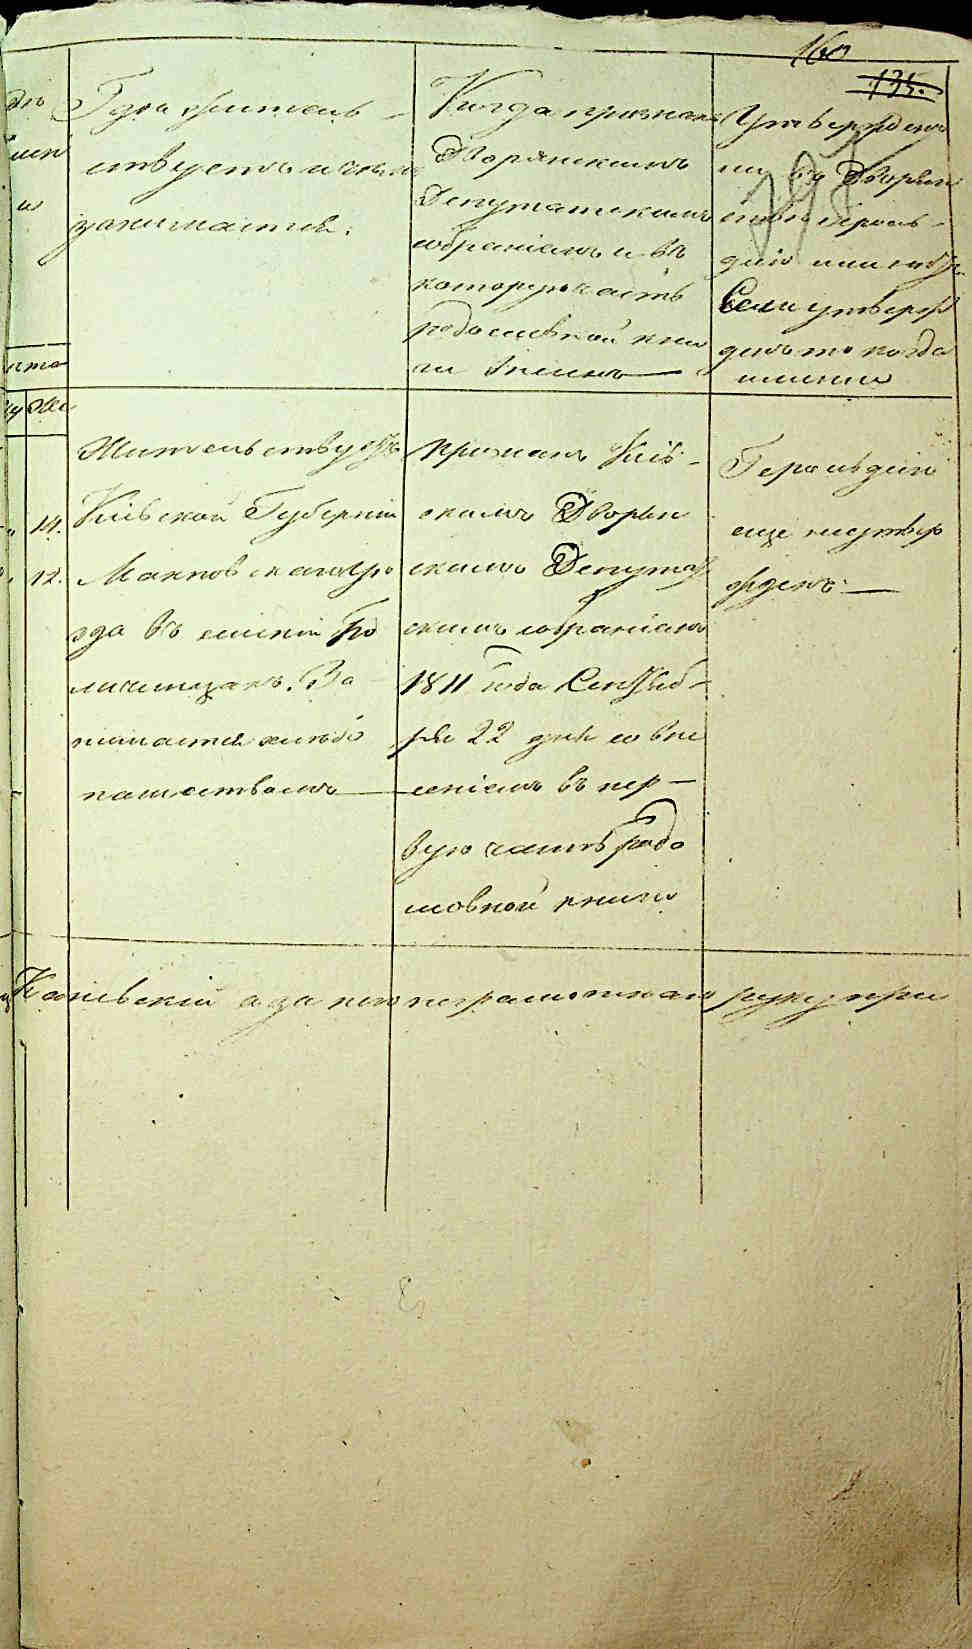 160
135.
Гдѣ житель-
ствуетъ и чемъ
занимается.
Когда признанъ
Дворянскимъ
Депутатскимъ
собраніемъ и въ
которую часть
родословной кни
ги внесенъ
Утвержденъ
ли въ Дворян
ствѣ Героль-
діею или нетъ.
Если утверж
денъ то когда
именно
Жительствуетъ
Кіевской Губерніи
14.
12.
Махновскаго уѣ
зда въ селеніи
Занимается хлебо
пашествомъ
признанъ Кіев-
скимъ Дворян
скимъ Депутат
скимъ собраніемъ
1811 года Сентяб-
ря 22 дня со вне
сеніемъ въ пер-
вую часть родо
словной книги
Герольдіею
еще неутвер
жденъ
а за него неграмотнаго руку при